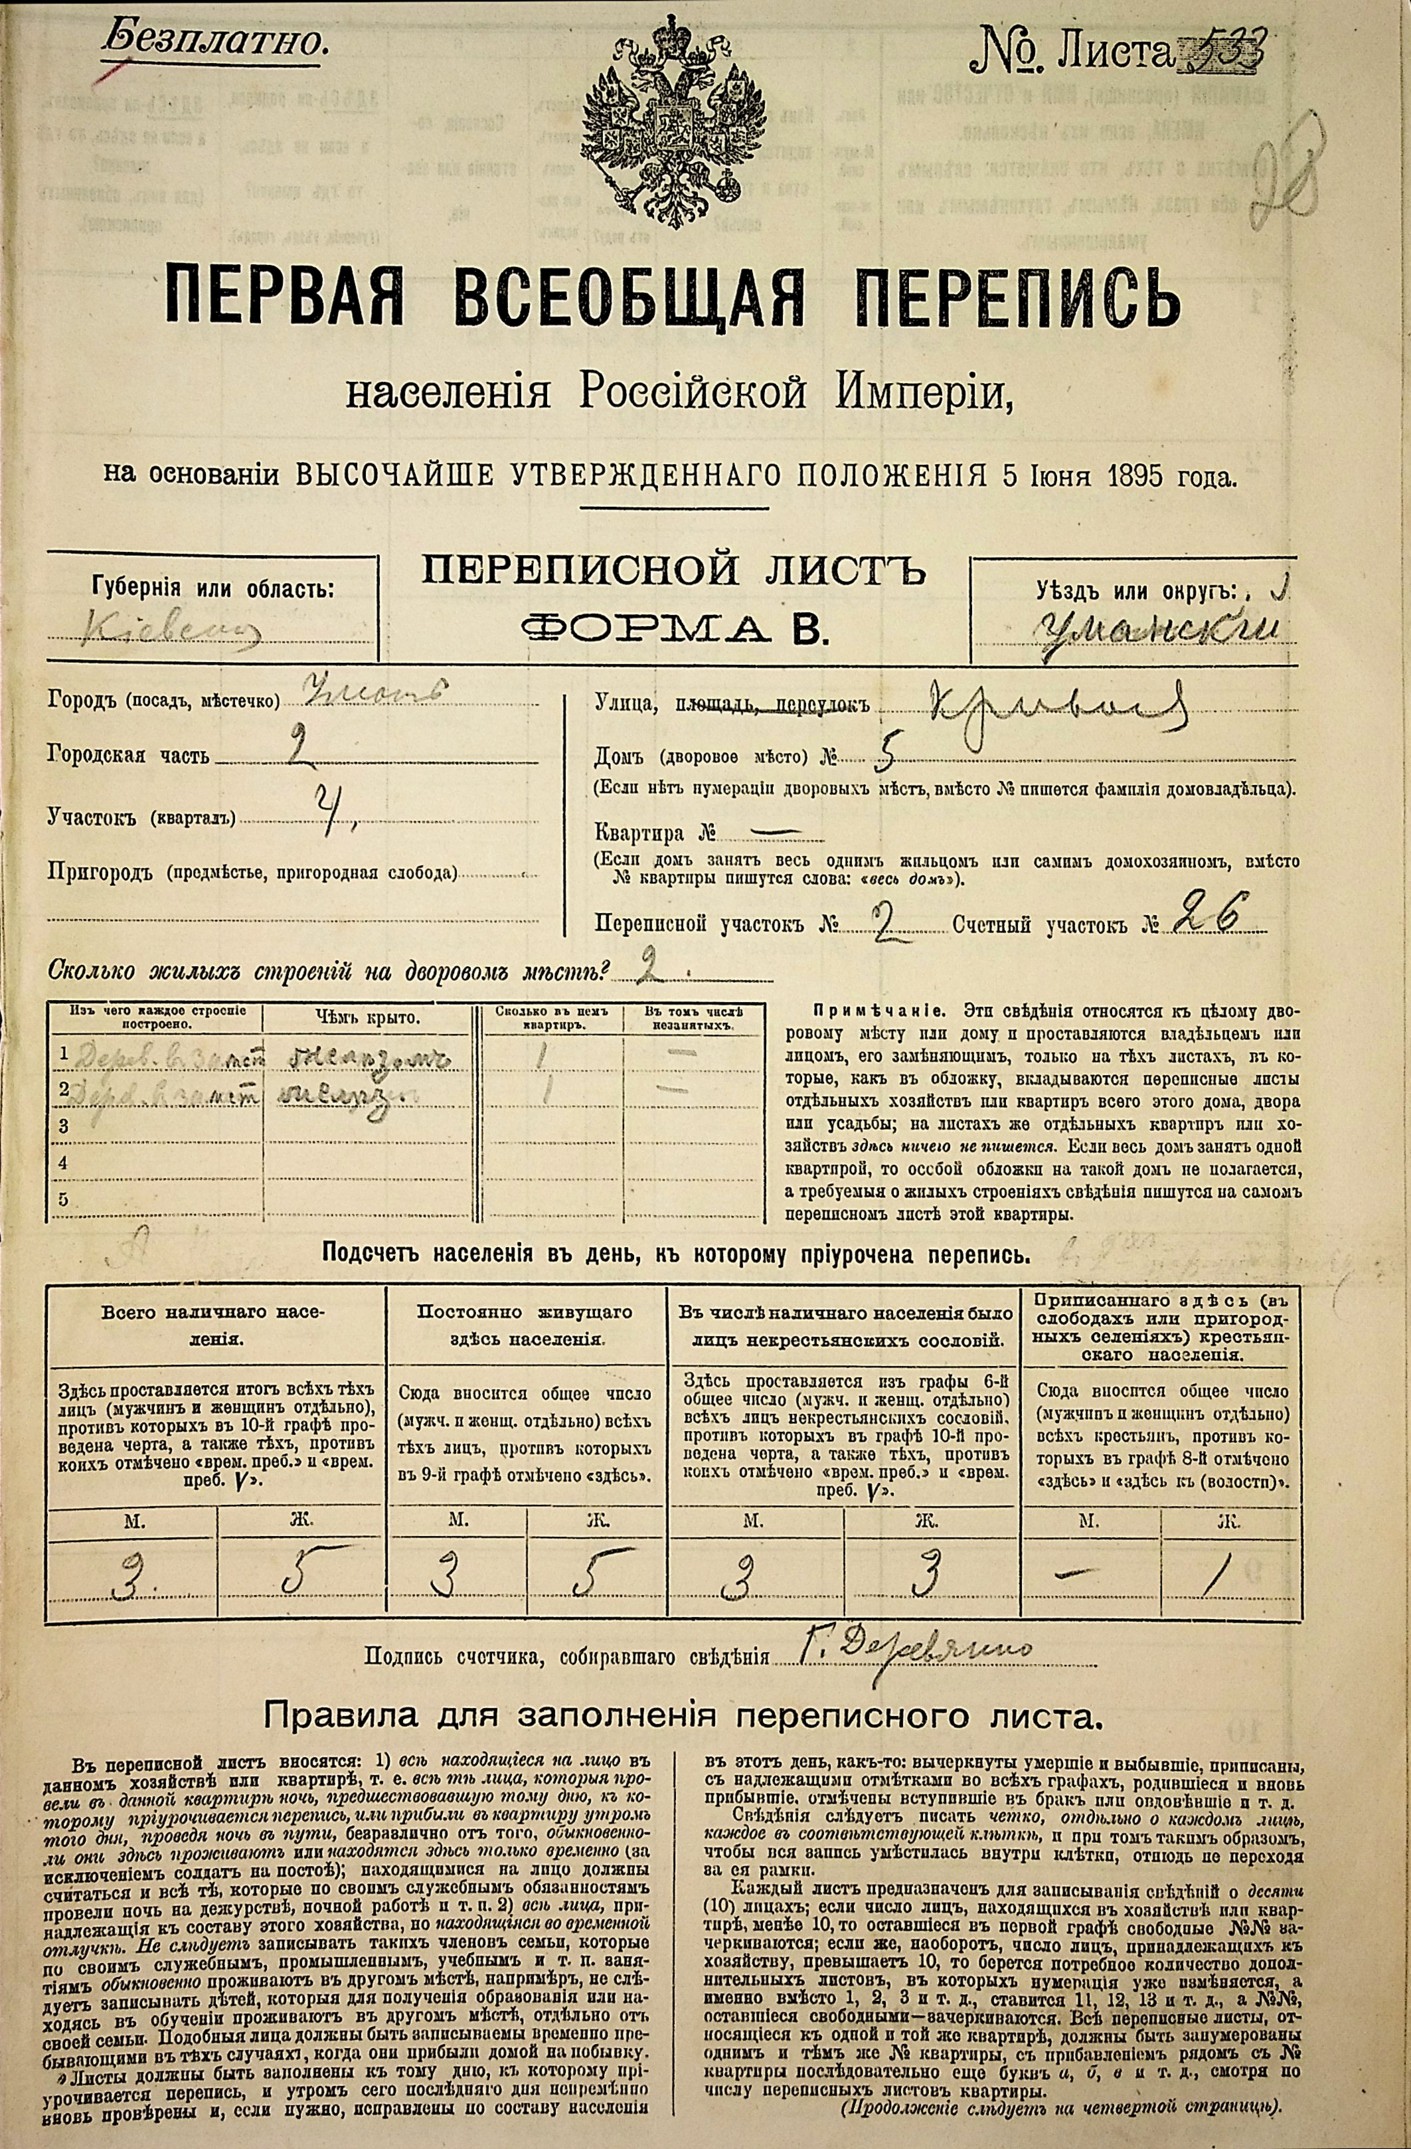 Безплатно.
№. Листа 533
28
ПЕРВАЯ ВСЕОБЩАЯ ПЕРЕПИСЬ
населенія Россійской Имперіи,
на основаніи ВЫСОЧАЙШЕ УТВЕРЖДЕННАГО ПОЛОЖЕНІЯ 5 Іюня 1895 года.
Губернія или область:
Кіевская
ПЕРЕПИСНОЙ ЛИСТЪ
ФОРМА В.
Уѣздъ или округъ:
Уманскій
Городъ (посадъ, мѣстечко) Умань
Городская часть 2
Участокъ (кварталъ) 4,
Пригородъ (предмѣстье, пригородная слобода)
Улица, площадь, переулокъ Кривая
Домъ (дворовое мѣсто) № 5
(Если нѣтъ нумераціи дворовыхъ мѣстъ, вмѣсто № пишется фамилія домовладѣльца).
Квартира № —
(Если домъ занятъ весь однимъ жильцомъ или самимъ домохозяиномъ, вмѣсто
№ квартиры пишутся слова: «весь домъ»).
Переписной участокъ № 2 Счетный участокъ № 26
Сколько жилыхъ строеній на дворовомъ мѣстѣ? 2.
Изъ чего каждое строеніе
построено.
Чѣмъ крыто.
Сколько въ немъ
квартиръ.
Въ томъ числѣ
незанятыхъ.
1 Дерев. 1 —
2 Дерев. 1 —
3
4
5
Примѣчаніе. Эти свѣдѣнія относятся къ цѣлому дво-
ровому мѣсту или дому и проставляются владѣльцемъ или
лицомъ, его замѣняющимъ, только на тѣхъ листахъ, въ ко-
торые, какъ въ обложку, вкладываются переписные листы
отдѣльныхъ хозяйствъ или квартиръ всего этого дома, двора
или усадьбы; на листахъ же отдѣльныхъ квартиръ или хо-
зяйствъ здѣсь ничего не пишется. Если весь домъ занятъ одной
квартирой, то особой обложки на такой домъ не полагается,
а требуемыя о жилыхъ строеніяхъ свѣдѣнія пишутся на самомъ
переписномъ листѣ этой квартиры.
Подсчетъ населенія въ день, къ которому пріурочена перепись.
Всего наличнаго насе-
ленія.
Здѣсь проставляется итогъ всѣхъ тѣхъ
лицъ (мужчинъ и женщинъ отдѣльно),
противъ которыхъ въ 10-й графѣ про-
ведена черта, а также тѣхъ, противъ
коихъ отмѣчено «врем. преб.» и «врем.
преб. V».
М. Ж.
3. 5
Постоянно живущаго
здѣсь населенія.
Сюда вносится общее число
(мужч. и женщ. отдѣльно) всѣхъ
тѣхъ лицъ, противъ которыхъ
въ 9-й графѣ отмѣчено «здѣсь».
М. Ж.
3 5
Въ числѣ наличнаго населенія было
лицъ некрестьянскихъ сословій.
Здѣсь проставляется изъ графы 6-й
общее число (мужч. и женщ. отдѣльно)
всѣхъ лицъ некрестьянскихъ сословій,
противъ которыхъ въ графѣ 10-й про-
ведена черта, а также тѣхъ, противъ
коихъ отмѣчено «врем. преб.» и «врем.
преб. V».
М. Ж.
3 3
Приписаннаго здѣсь (въ
слободахъ или пригород-
ныхъ селеніяхъ) крестьян-
скаго населенія.
Сюда вносится общее число
(мужчинъ и женщинъ отдѣльно)
всѣхъ крестьянъ, противъ ко-
торыхъ въ графѣ 8-й отмѣчено
«здѣсь» и «здѣсь къ (волости)».
М. Ж.
— 1
Подпись счетчика, собиравшаго свѣдѣнія Г. Деревянно
Правила для заполненія переписного листа.
Въ переписной листъ вносятся: 1) всѣ находящіеся на лицо въ
данномъ хозяйствѣ или квартирѣ, т. е. всѣ тѣ лица, которыя про-
вели въ данной квартирѣ ночь, предшествовавшую тому дню, къ ко-
торому пріурочивается перепись, или прибыли въ квартиру утромъ
того дня, проведя ночь въ пути, безразлично отъ того, обыкновенно-
ли они здѣсь проживаютъ или находятся здѣсь только временно (за
исключеніемъ солдатъ на постоѣ); находящимися на лицо должны
считаться и всѣ тѣ, которые по своимъ служебнымъ обязанностямъ
провели ночь на дежурствѣ, ночной работѣ и т. п. 2) всѣ лица, при-
надлежащія къ составу этого хозяйства, но находящіяся во временной
отлучкѣ. Не слѣдуетъ записывать такихъ членовъ семьи, которые
по своимъ служебнымъ, промышленнымъ, учебнымъ и т. п. заня-
тіямъ обыкновенно проживаютъ въ другомъ мѣстѣ, напримѣръ, не слѣ-
дуетъ записывать дѣтей, которыя для полученія образованія или на-
ходясь въ обученіи проживаютъ въ другомъ мѣстѣ, отдѣльно отъ
своей семьи. Подобныя лица должны быть записываемы временно пре-
бывающими въ тѣхъ случаяхъ, когда они прибыли домой на побывку.
Листы должны быть заполнены къ тому дню, къ которому прі-
урочивается перепись, и утромъ сего послѣдняго дня непремѣнно
вновь провѣрены и, если нужно, исправлены по составу населенія
въ этотъ день, какъ-то: вычеркнуты умершіе и выбывшіе, приписаны,
съ надлежащими отмѣтками во всѣхъ графахъ, родившіеся и вновь
прибывшіе, отмѣчены вступившіе въ бракъ или овдовѣвшіе и т. д.
Свѣдѣнія слѣдуетъ писать четко, отдѣльно о каждомъ лицѣ,
каждое въ соотвѣтствующей клѣткѣ, и при томъ такимъ образомъ,
чтобы вся запись умѣстилась внутри клѣтки, отнюдь не переходя
за ея рамки.
Каждый листъ предназначенъ для записыванія свѣдѣній о десяти
(10) лицахъ; если число лицъ, находящихся въ хозяйствѣ или квар-
тирѣ, менѣе 10, то оставшіеся въ первой графѣ свободные №№ за-
черкиваются; если же, наоборотъ, число лицъ, принадлежащихъ къ
хозяйству, превышаетъ 10, то берется потребное количество допол-
нительныхъ листовъ, въ которыхъ нумерація уже измѣняется, а
именно вмѣсто 1, 2, 3 и т. д., ставится 11, 12, 13 и т. д., а №№,
оставшіеся свободными—зачеркиваются. Всѣ переписные листы, от-
носящіеся къ одной и той же квартирѣ, должны быть занумерованы
однимъ и тѣмъ же № квартиры, съ прибавленіемъ рядомъ съ №
квартиры послѣдовательно еще буквъ а, б, в и т. д., смотря по
числу переписныхъ листовъ квартиры.
(Продолженіе слѣдуетъ на четвертой страницѣ).